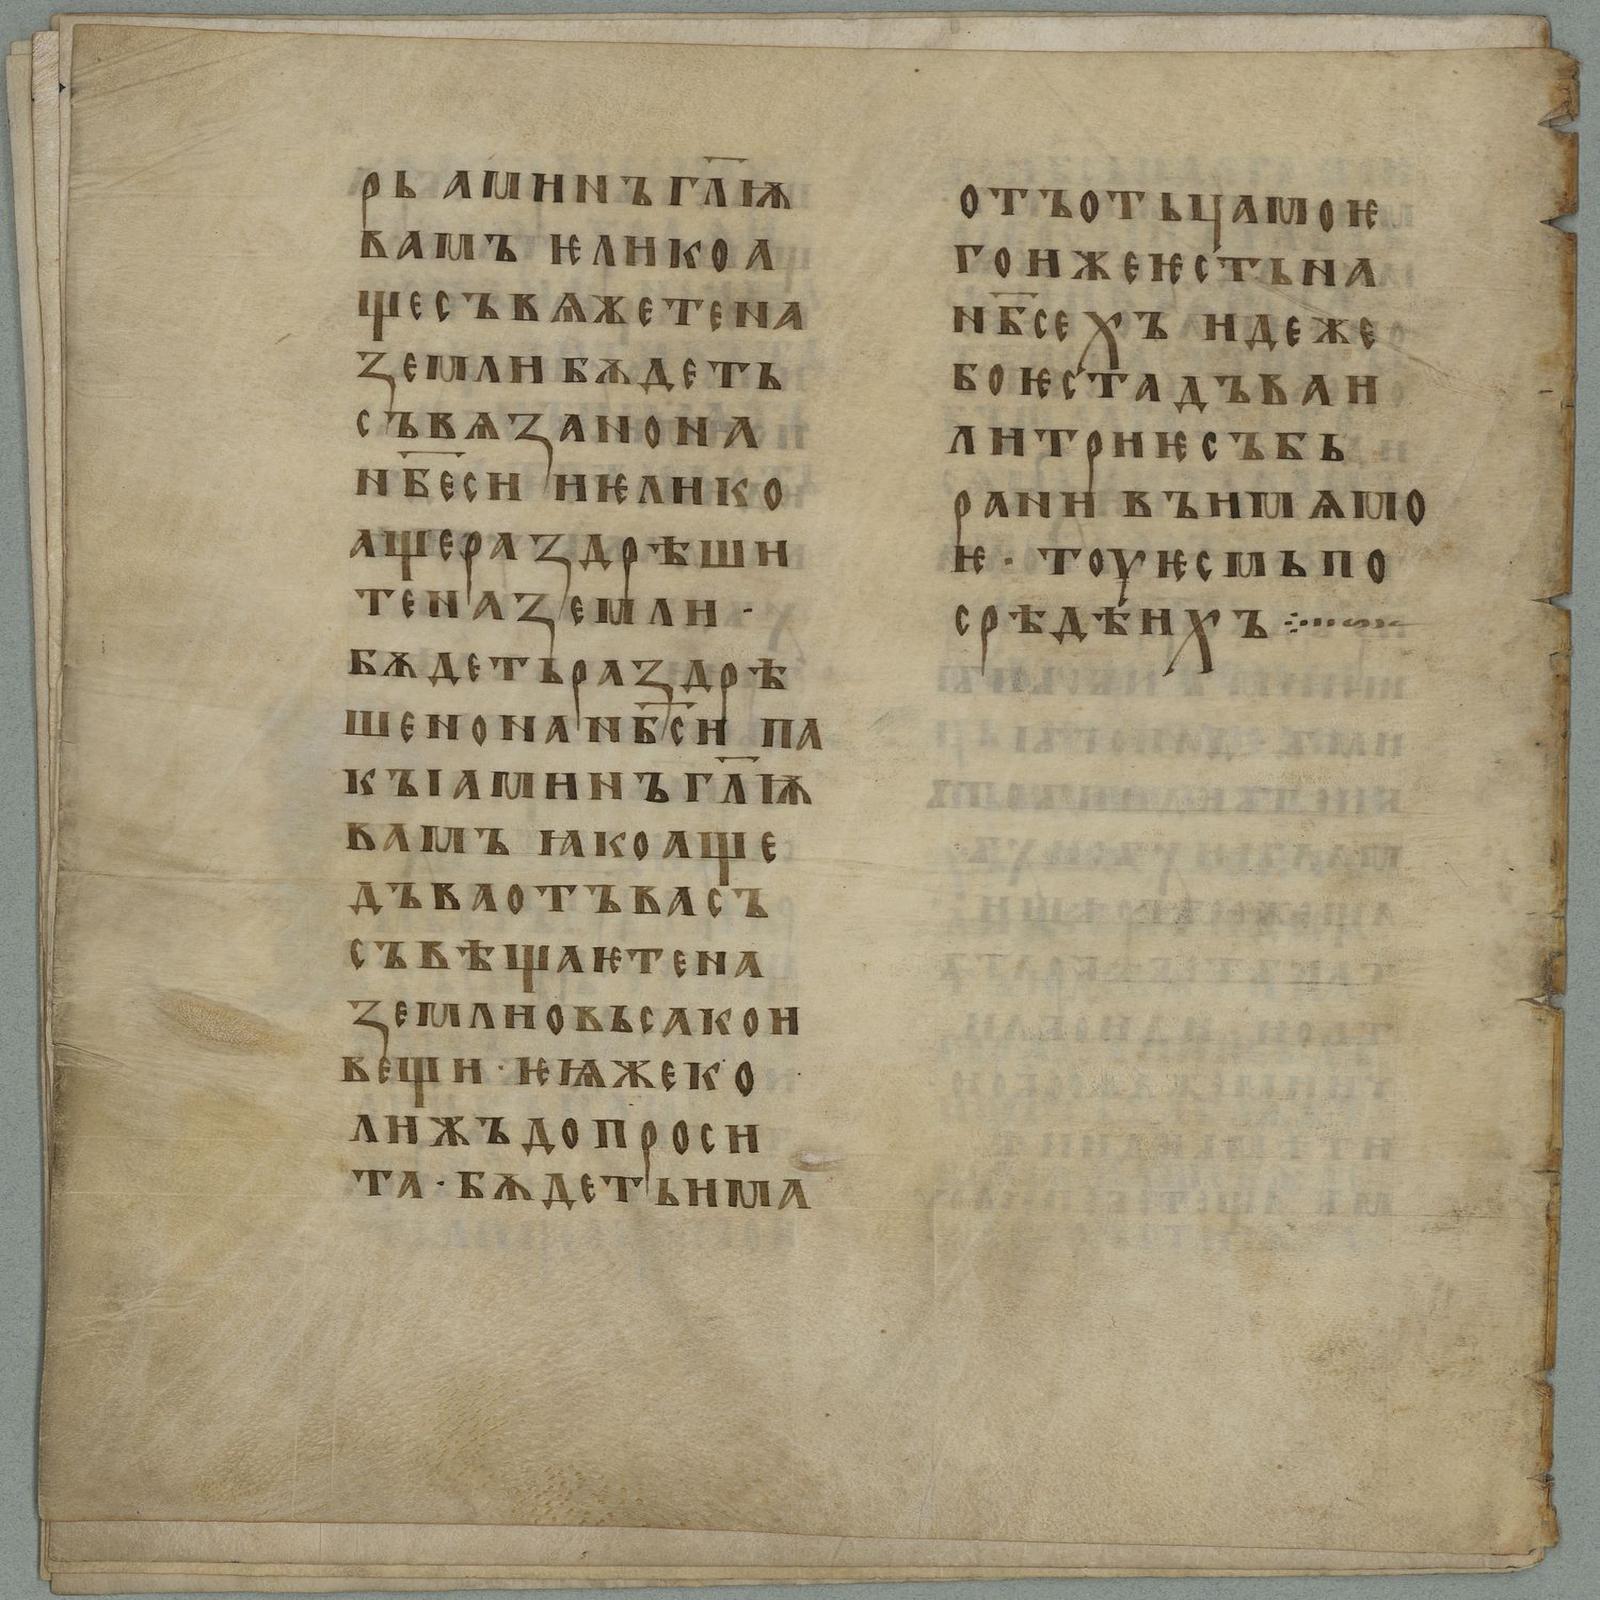 рь аминъ гл҃ѭ
вамъ ѥлико а
щесъвѧжетена
земли бѫдеть
съвѧзанона
нб҃еси иѥлико
ащераздрѣши
теназемли ·
бѫдетьраздрѣ
шенонанб҃си па
къіаминъгл҃ѭ
вамъ ꙗкоаще
дъваотъвасъ
съвѣщаѥтена
землиовьсакои
вещи · ѥѩжеко
лижъдопроси
та · бѫдетьима
отъотьцамоѥ
гоижеѥстьна
нб҃сехъ идеже
боѥстадъваи
литриѥсъбь
рани въимѧмо
ѥ · тоуѥсмьпо
срѣдѣихъ